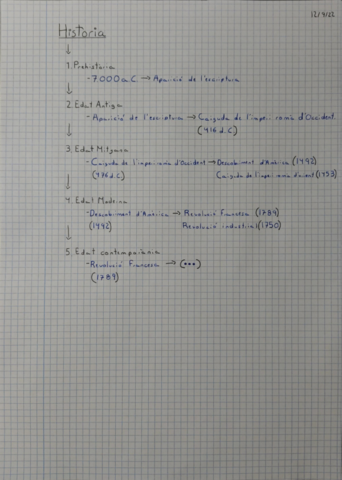 12/9/22
Historia
↓
1. Prehistòria
-7000 a.C → Aparició de l'escriptura
↓
2. Edat Antiga
-Aparició de l'escriptura → Caiguda de l'imperi romà d'Occident.
(476 d.C)
↓
3. Edat Mitjana
-Caiguda de l'imperi romà d'Occident → Descobriment d'Amèrica (1492)
(476 d.C) Caiguda de l'imperi romà d'orient (1453)
↓
4. Edat Moderna
-Descobriment d'Amèrica → Revolució Francesa (1789)
(1492) Revolució industrial (1750)
↓
5. Edat contemporània
-Revolució Francesa → (•••)
(1789)